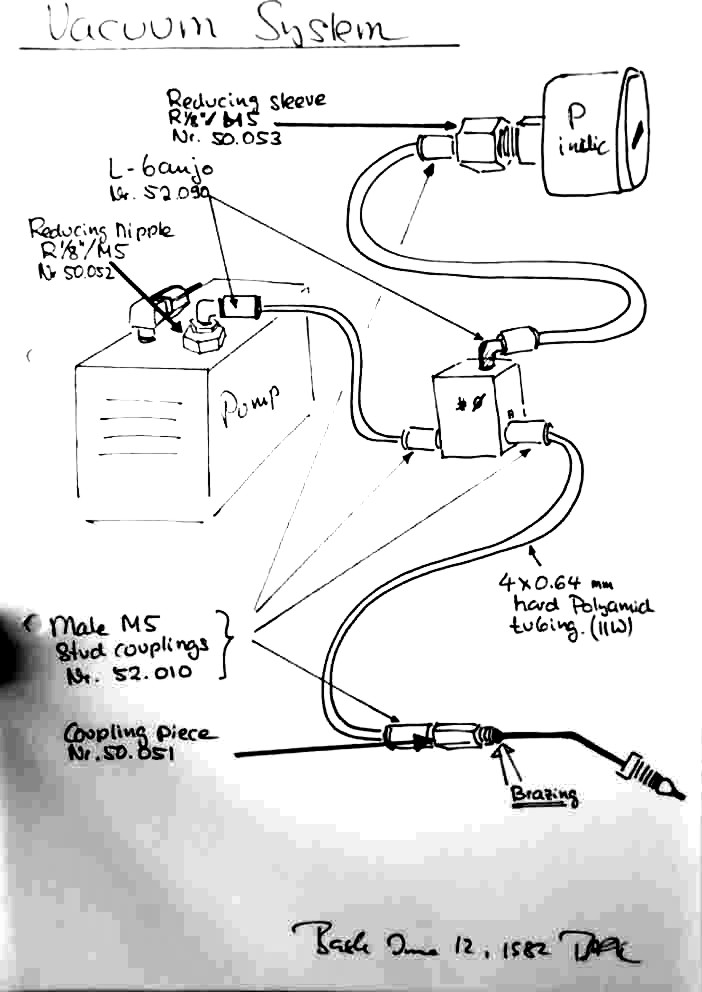 Vacuum System
Reducing sleeve
R⅛"/M5
Nr. 50.053
P
indic
L-banjo
Nr. 52.090
Reducing Nipple
R⅛"/M5
Nr 50.052
Pump
A
4×0.64 mm
hard Polyamid
tubing. (11W)
Male M5
Stud couplings
Nr. 52.010
Coupling piece
Nr. 50.051
Brazing
June 12, 1982